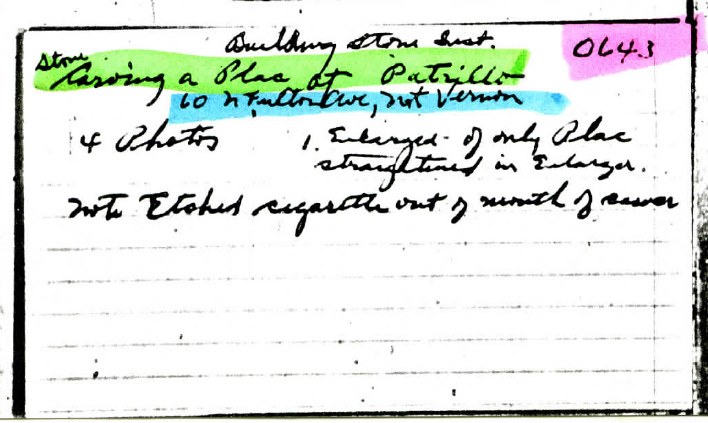 Building Stone Inst.
0643
Stone
Carving a Plac at Patrillo
60 N Fulton Ave, Mt Vernon
4 Photos 1. Enlarged - of only Plac
straightened in Enlarger.
Note Etched cigarette out of mouth of carver